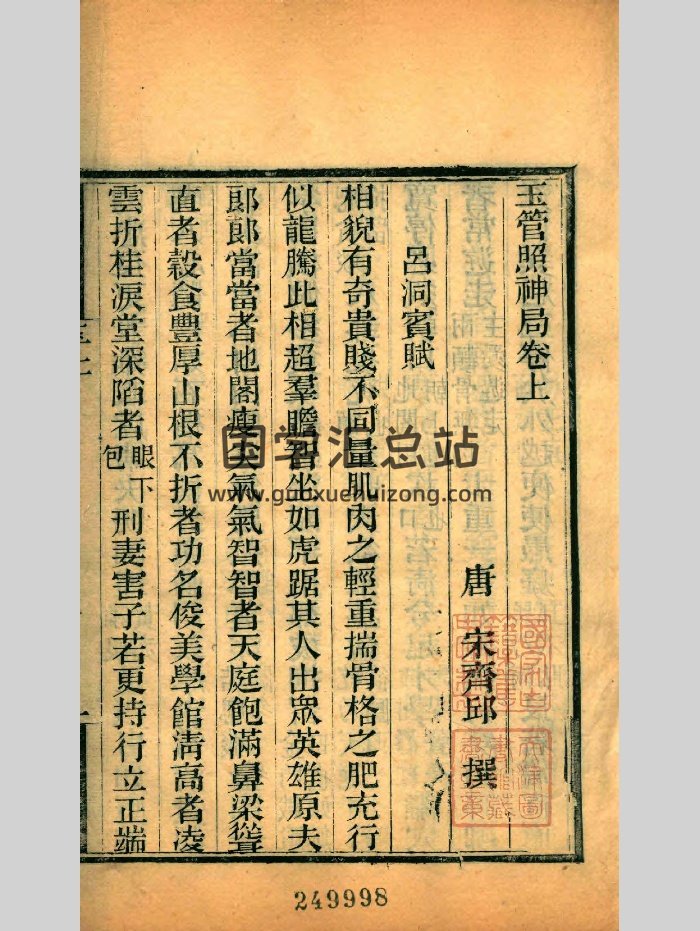 玉管照神局卷上
唐 宋齊邱 撰
呂洞賓賦
相貌有奇貴賤不同量肌肉之輕重揣骨格之肥充行
似龍騰此相超羣膽智坐如虎踞其人出眾英雄原夫
郞郞當當者地閣瘦尖氣氣智智者天庭飽滿鼻梁聳
直者穀食豐厚山根不折者功名俊美學館淸高者凌
雲折桂淚堂深陷者眼下包刑妻害子若更持行立正端
国学汇总站
www.guoxuehuizong.com
249998